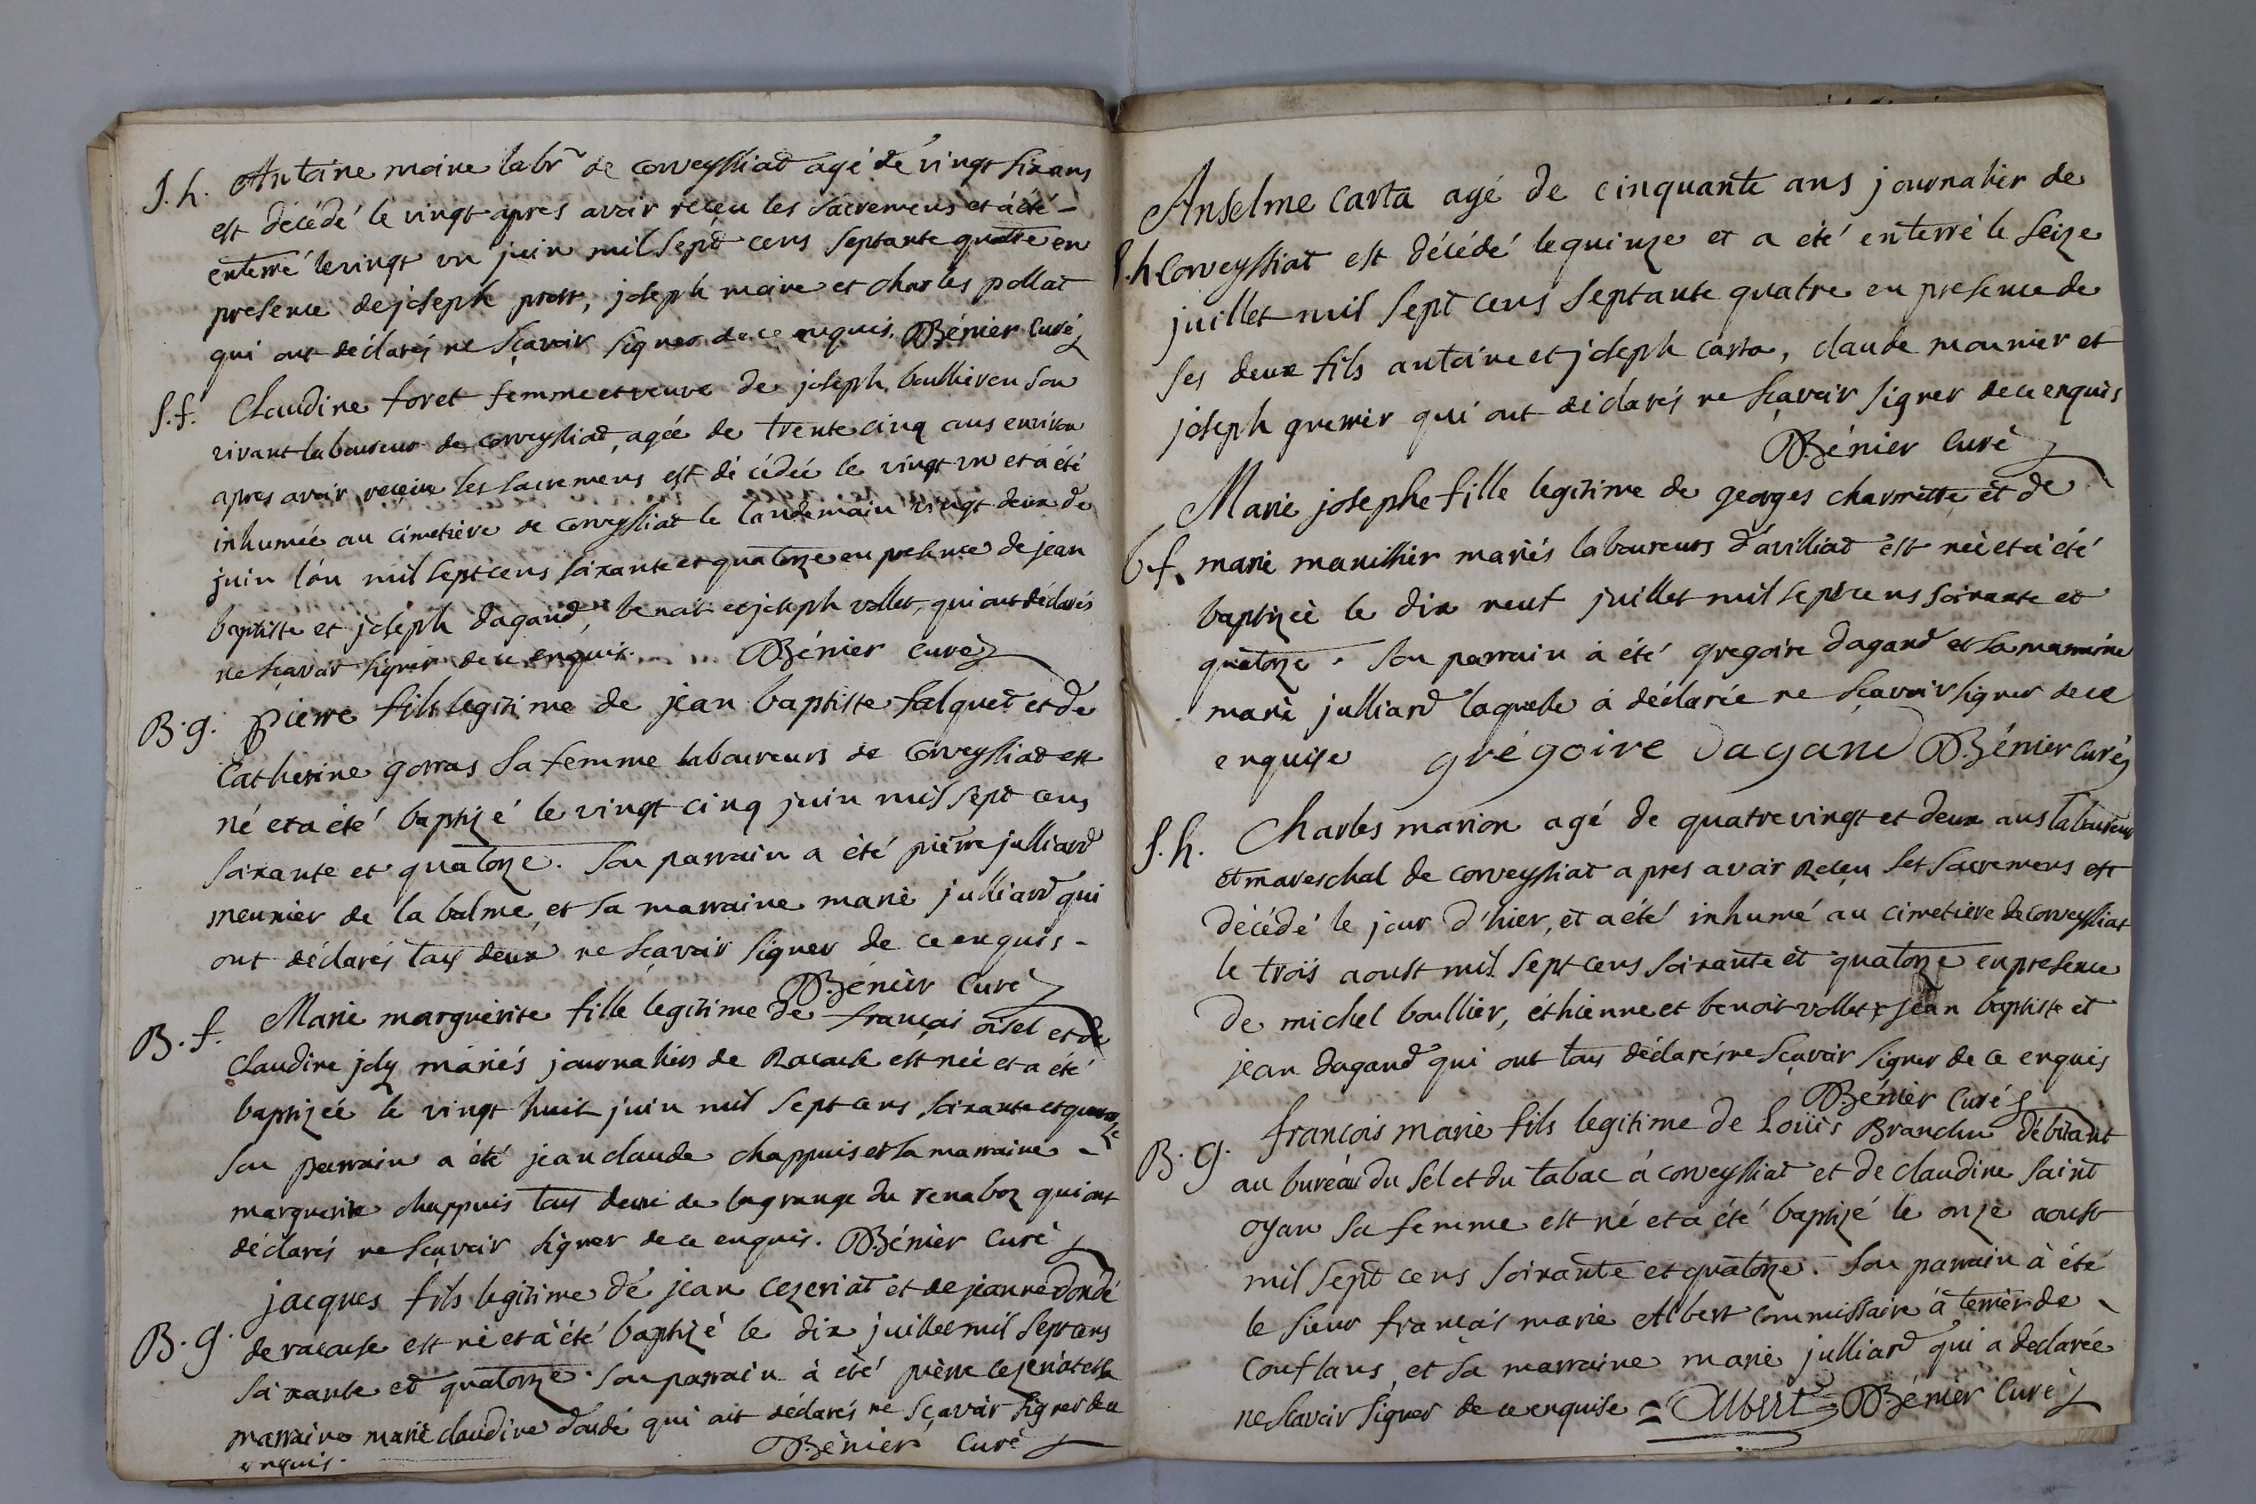 S. h. Antoine moine labr de corveyssiat agé de vingt six ans
est décédé le vingt apres avoir receu les sacremens et a été
enterré le vingt un juin mil sept cens septante quatre en
presence de joseph prost, joseph moine et charles pollat
qui ont déclarés ne sçavoir signer de ce enquis. Bénier Curé
S. f. Claudine foret femme et veuve de joseph boullier en son
vivant laboureur de corveyssiat, agée de trente cinq ans environ
apres avoir receüe les sacremens est dé cédée le vingt un et a été
inhumée au cimetière de corveyssiat le landemain vingt deux de
juin l'an mil sept cens soixante et quatorze en presence de jean
baptiste et joseph dagand, benoit et joseph vollet, qui ont déclarés
ne sçavoir signer de ce enquis. Bénier curé
B. g. Pierre fils legitime de jean baptiste falquet et de
Catherine gorras sa femme laboureurs de Corveyssiat est
né et a été baptizé le vingt cinq juin mil sept cens
soixante et quatorze. Son parrain a été pierre julliard
meunier de la balme et sa marraine marie julliard qui
ont déclarés tous deux ne sçavoir signer de ce enquis -
Bénier Curé
B. f. Marie marguerite fille legitime de françois oisel et de
Claudine joly mariés journaliers de Racouse est née et a été
baptizée le vingt huit juin mil sept cens soixante et quatorze
son parrain a été jean claude chappuis et sa marraine -
marguerite chappuis tous deux de la grange du renaboz qui ont
déclarés ne sçavoir signer de ce enquis. Bénier Curé
B. g. jacques fils legitime de jean cezeriat et de jeanne dondé
de racouse est né et a été baptizé le dix juillet mil sept cens
soixante et quatorze. son parrain a été pierre cezeriat et sa
marraine marie claudine dondé qui ont déclarés ne sçavoir signer de ce
enquis. Bénier Curé
Anselme Carta agé de cinquante ans journalier de
S. h. Corveyssiat est décédé le quinze et a été enterré le seize
juillet mil sept cens septante quatre en presence de
ses deux fils antoine et joseph carta, claude mounier et
joseph grenier qui ont déclarés ne sçavoir signer de ce enquis
Bénier Curé
Marie josephe fille legitime de georges charmette et de
b. f. marie manillier mariés laboureurs d'avilliat est née et a été
baptizée le dix neuf juillet mil sept cens soixante et
quatorze. Son parrain a été gregoire dagand et sa marraine
marie julliard laquelle a déclarée ne sçavoir signer de ce
enquise grégoire dagand Bénier Curé
S. h. Charles marion agé de quatre vingt et deux ans laboureur
et mareschal de corveyssiat apres avoir Receu les sacremens est
décédé le jour d'hier, et a été inhumé au cimetiere de corveyssiat
le trois aoust mil sept cens soixante et quatorze en presence
de michel boullier, éthienne et benoit vollet, jean baptiste et
jean dagand qui ont tous déclarés ne sçavoir signer de ce enquis
Bénier Curé
B. g. françois marie fils legitime de Loüis Branchu débitant
au buréau du sel et du tabac à corveyssiat et de claudine saint
oyan sa femme est né et a été baptizé le onze aoust
mil sept cens soixante et quatorze. Son parrain à été
le sieur françois marie Albert commissaire à terrier de
Conflans, et sa marraine marie julliard qui a declarée
ne sçavoir signer de ce enquise = Albert = Bénier Curé